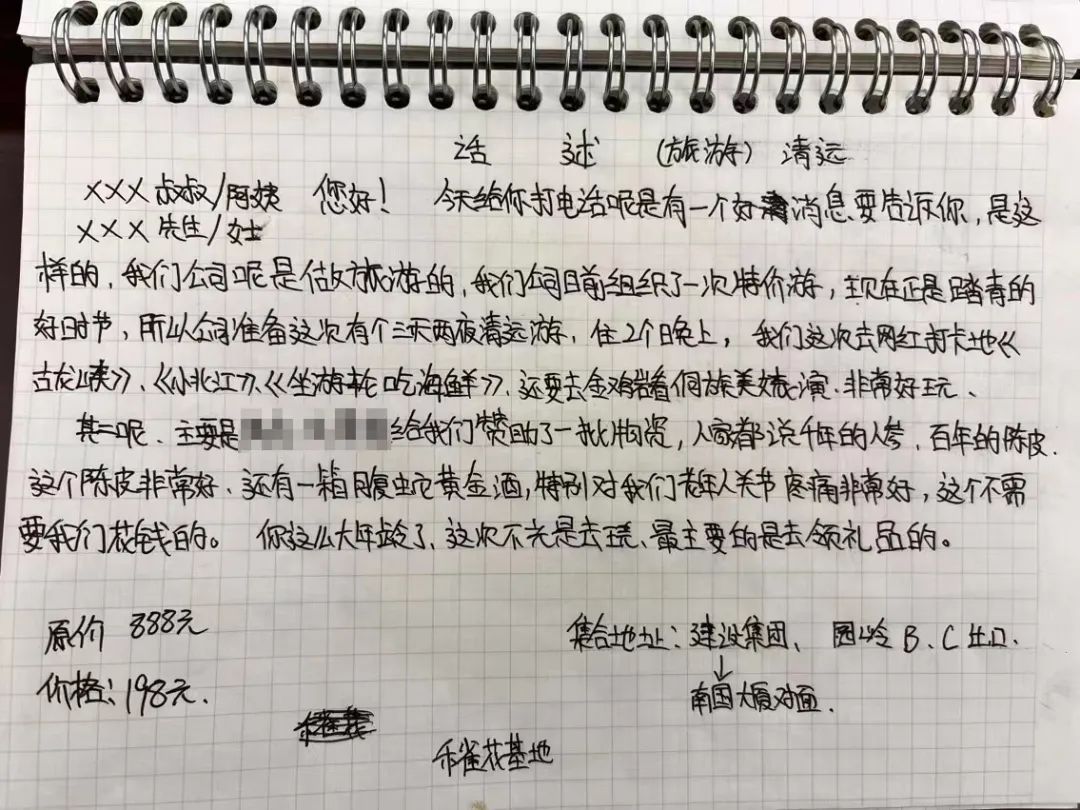 话 述 (旅游) 清远
XXX 叔叔/阿姨 您好! 今天给你打电话呢是有一个好消息要告诉你,是这
XXX 先生/女士
样的,我们公司呢是做旅游的,我们公司目前组织了一次特价游,现在正是踏青的
好时节,所以公司准备这次有个三天两夜清远游,住2个晚上,我们这次去网红打卡地《
古龙峡》、《小北江》、《坐游轮吃海鲜》、还要去金鸡岩看侗族美婊演.非常好玩、
其二呢、主要是 给我们赞助了一批物资,人家都说千年的人参,百年的陈皮.
这个陈皮非常好、还有一箱腹蛇黄金酒,特别对我们老年人关节疼痛非常好,这个不需
要我们花钱的。 你这么大年龄了、这次不光是去玩、最主要的是去领礼品的。
原价 388元
集合地址:建设集团、园岭B、C出口.
价格:198元.
↓
南国大厦对面.
禾雀花基地